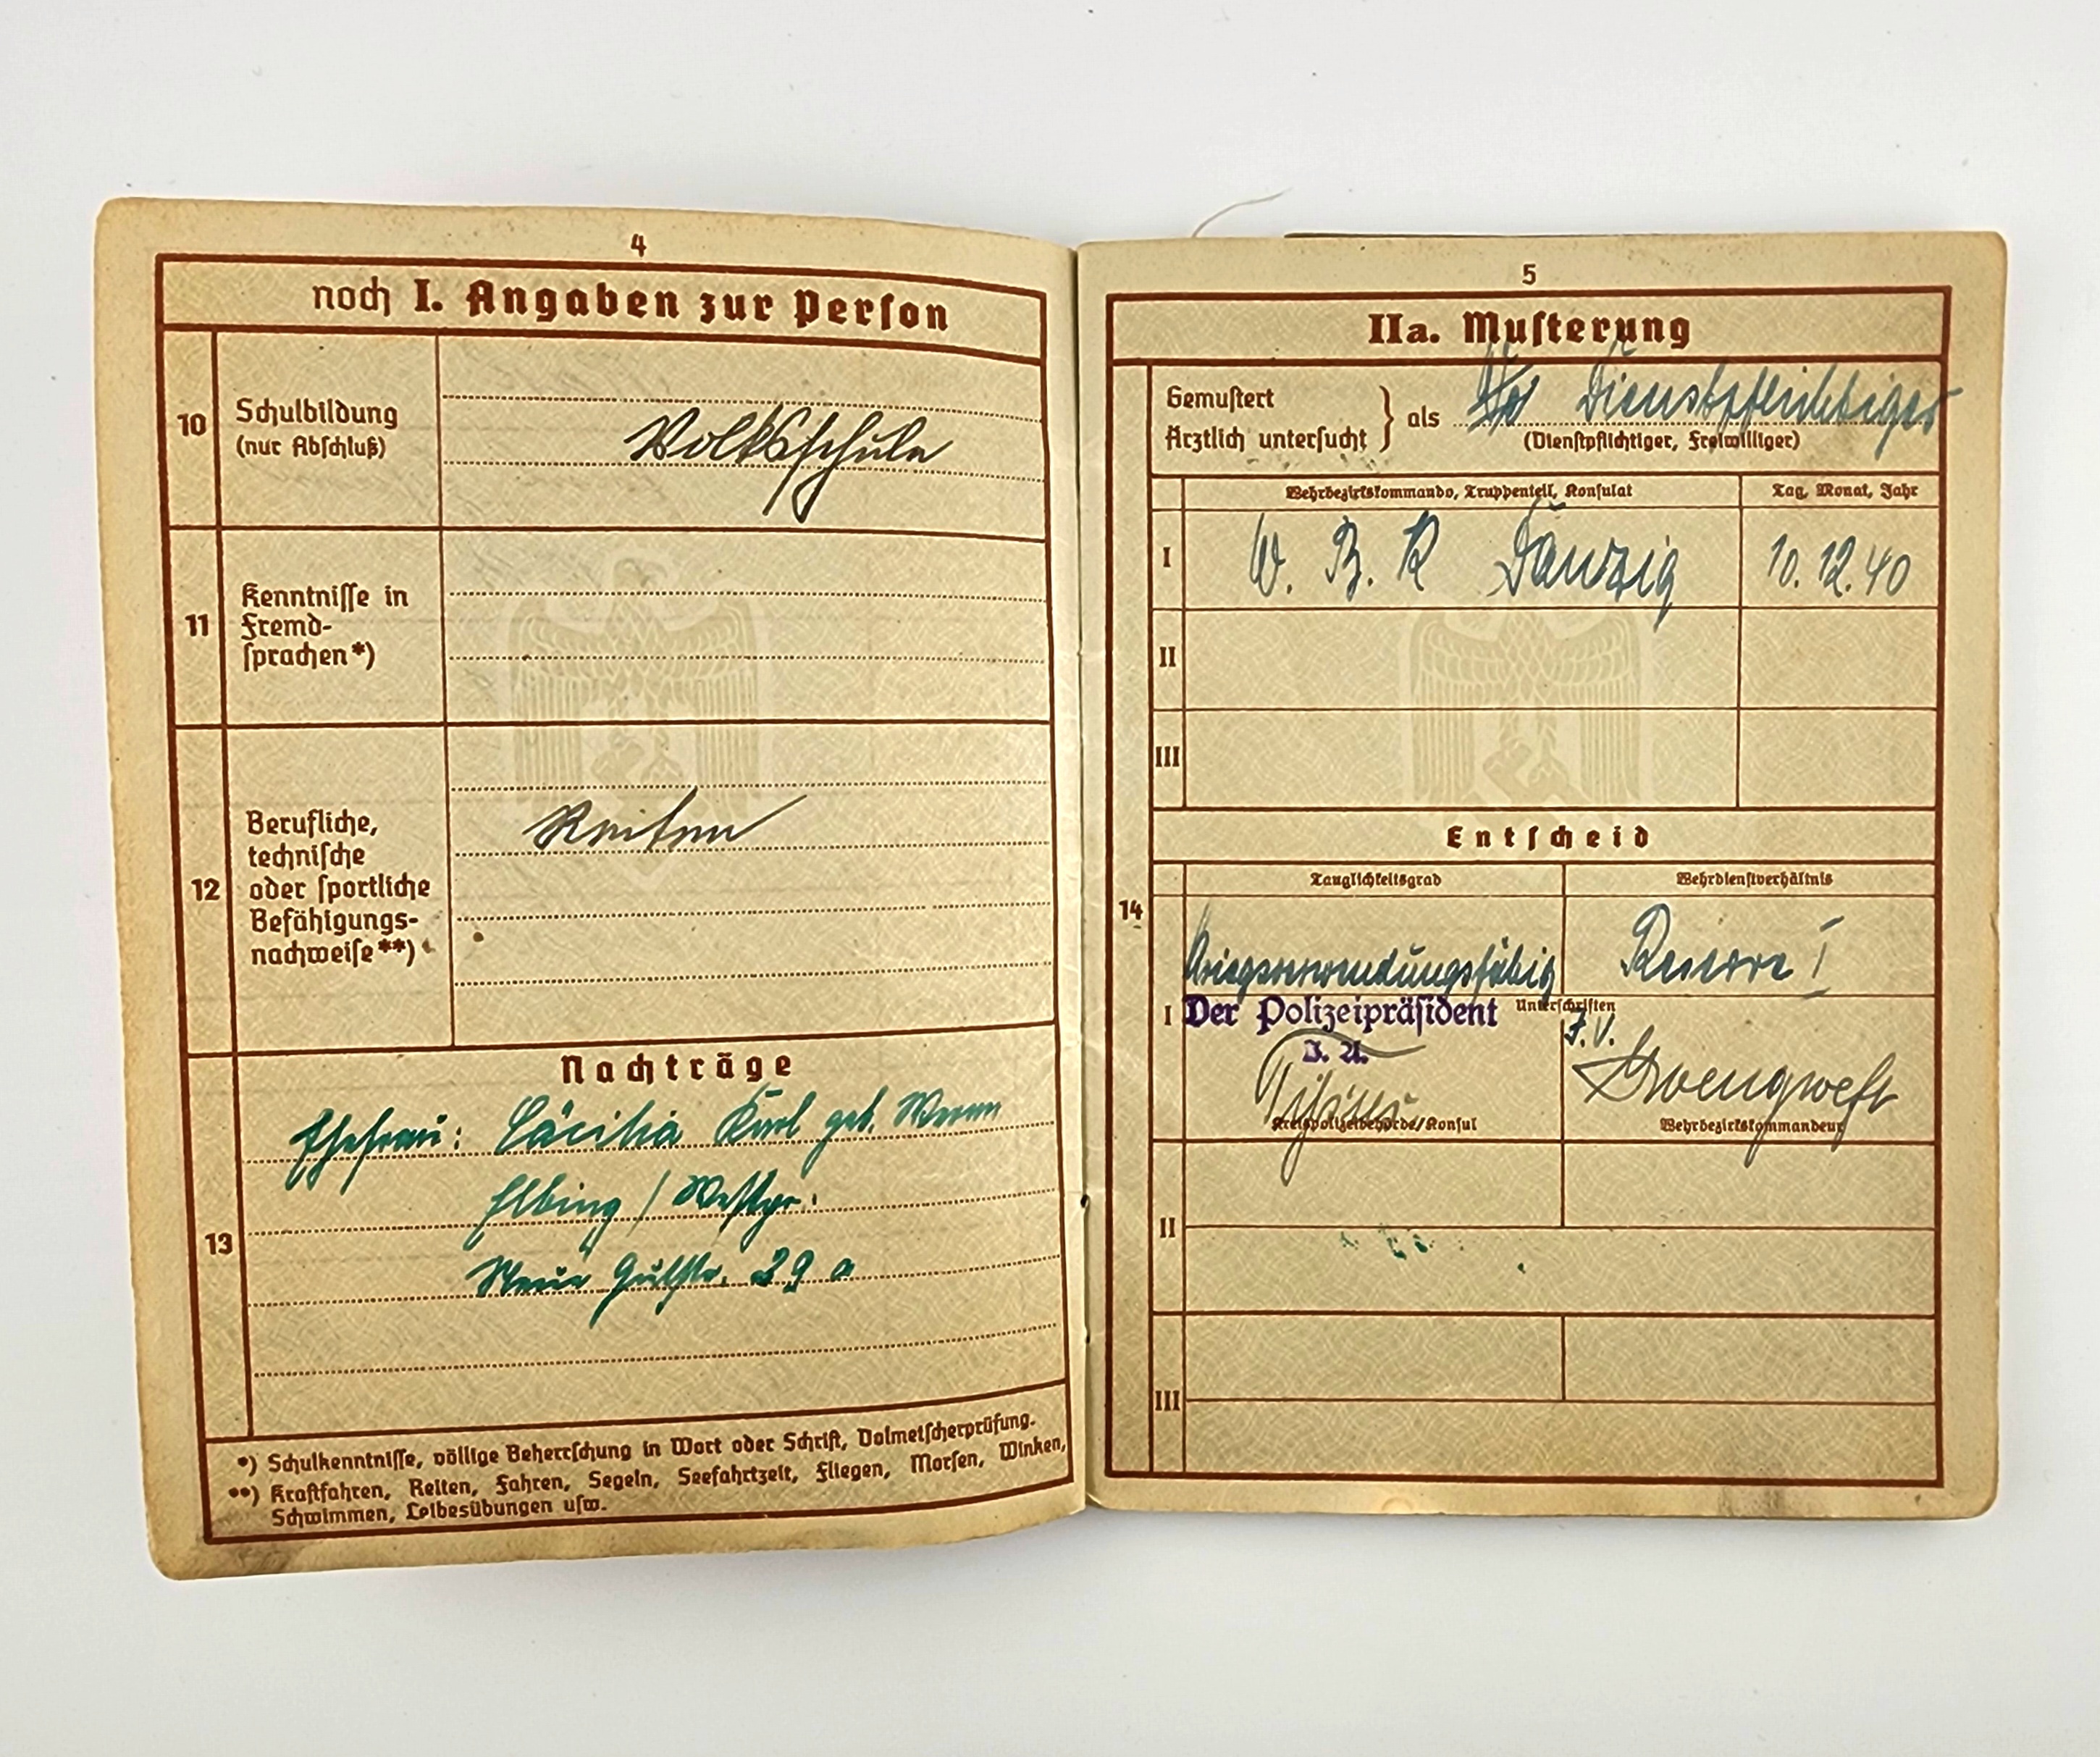 4
noch I. Angaben zur Person
10
Schulbildung
(nur Abschluß)
Volksschule
11
Kenntnisse in
Fremd-
sprachen*)
12
Berufliche,
technische
oder sportliche
Befähigungs-
nachweise**)
Reiten
Nachträge
13
Ehefrau: Cäcilia Karl geb.
Elbing / Westpr.
Neue Gutstr. 29 a
*) Schulkenntnisse, völlige Beherrschung in Wort oder Schrift, Dolmetscherprüfung.
**) Kraftfahren, Reiten, Fahren, Segeln, Seefahrtzeit, Fliegen, Morsen, Winken,
Schwimmen, Leibesübungen usw.
5
IIa. Musterung
Gemustert
Ärztlich untersucht
als
Dienstpflichtiger
(Dienstpflichtiger, Freiwilliger)
Wehrbezirkskommando, Truppenteil, Konsulat
Tag, Monat, Jahr
I
W. B. K Danzig
10. 12. 40
II
III
Entscheid
14
Tauglichkeitsgrad
Wehrdienstverhältnis
Kriegsverwendungsfähig
Reserve I
I
Der Polizeipräsident
Unterschriften
J. A.
J. V.
Kreispolizeibehörde/Konsul
Wehrbezirkskommandeur
II
III